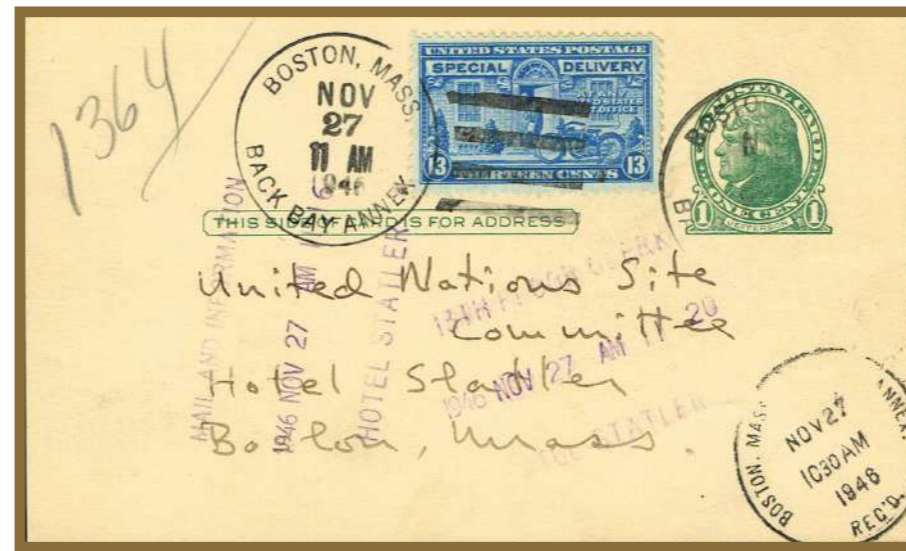 1364
BOSTON, MASS.
NOV
27
11 AM
1946
BACK BAY ANNEX
UNITED STATES POSTAGE
SPECIAL DELIVERY
AT ANY
UNITED STATES
POST OFFICE
13 THIRTEEN CENTS 13
POSTAL CARD
1 ONE CENT 1
JEFFERSON
BOSTO
THIS SIDE OF CARD IS FOR ADDRESS
United Nations Site
Committee
Hotel Statler
Boston, Mass.
MAIL AND INFORMATION
1946 NOV 27 AM
HOTEL STATLER
13TH FLOOR CLERK
1946 NOV 27 AM 11 20
STATLER
BOSTON, MASS. ANNEX.
NOV 27
1030 AM
1946
REC'D.